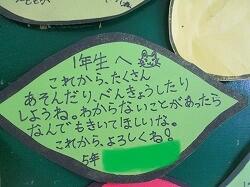 1年生へ
これから、たくさん
あそんだり、べんきょうしたり
しようね。わからないことがあったら
なんでもきいてほしいな。
これから、よろしくね!
5年